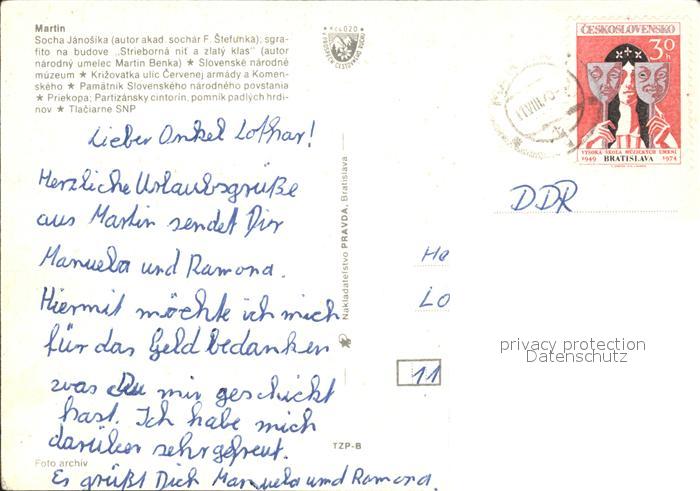 Martin
Socha Jánošíka (autor akad. sochár F. Štefunka); sgra-
fito na budove „Strieborná niť a zlatý klas" (autor
národný umelec Martin Benka) ★ Slovenské národné
múzeum ★ Križovatka ulíc Červenej armády a Komen-
ského ★ Pamätník Slovenského národného povstania
★ Priekopa: Partizánsky cintorín, pomník padlých hrdi-
nov ★ Tlačiarne SNP
Lieber Onkel Lothar!
Herzliche Urlaubsgrüße
aus Martin sendet Dir
Manuela und Ramona.
Hiermit möchte ich mich
für das Geld bedanken
was Du mir geschickt
hast. Ich habe mich
darüber sehr gefreut.
Es grüßt Dich Manuela und Ramona.
Foto archív
TZP-B
Nakladateľstvo PRAVDA, Bratislava
ČESKOSLOVENSKO
30h
VYSOKÁ ŠKOLA MÚZICKÝCH UMENÍ
1949 BRATISLAVA 1974
DDR
He
Lo
11
privacy protection
Datenschutz